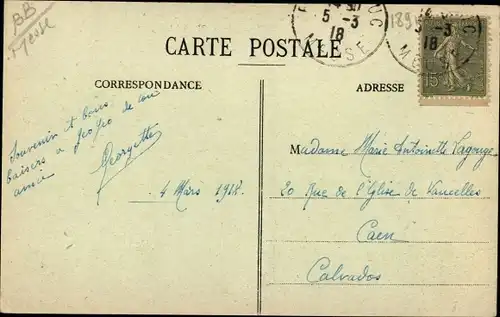 BB
Meuse
UC
5 -3
18
MEUSE
189
5 -3
18
15
CARTE POSTALE
CORRESPONDANCE
ADRESSE
Souvenir et bons
baisers a gogo de ton
amie
Georgette
4 Mars 1918.
Madame Marie Antoinette Lagouge
20 Rue de l'Eglise de Vaucelles
Caen
Calvados